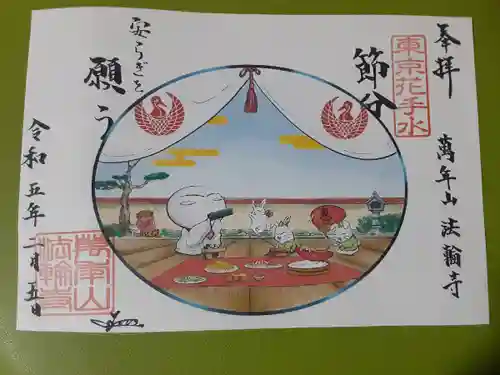 奉拝
東京花手水
節分
萬年山 法輪寺
安らぎを
願う
令和五年二月五日